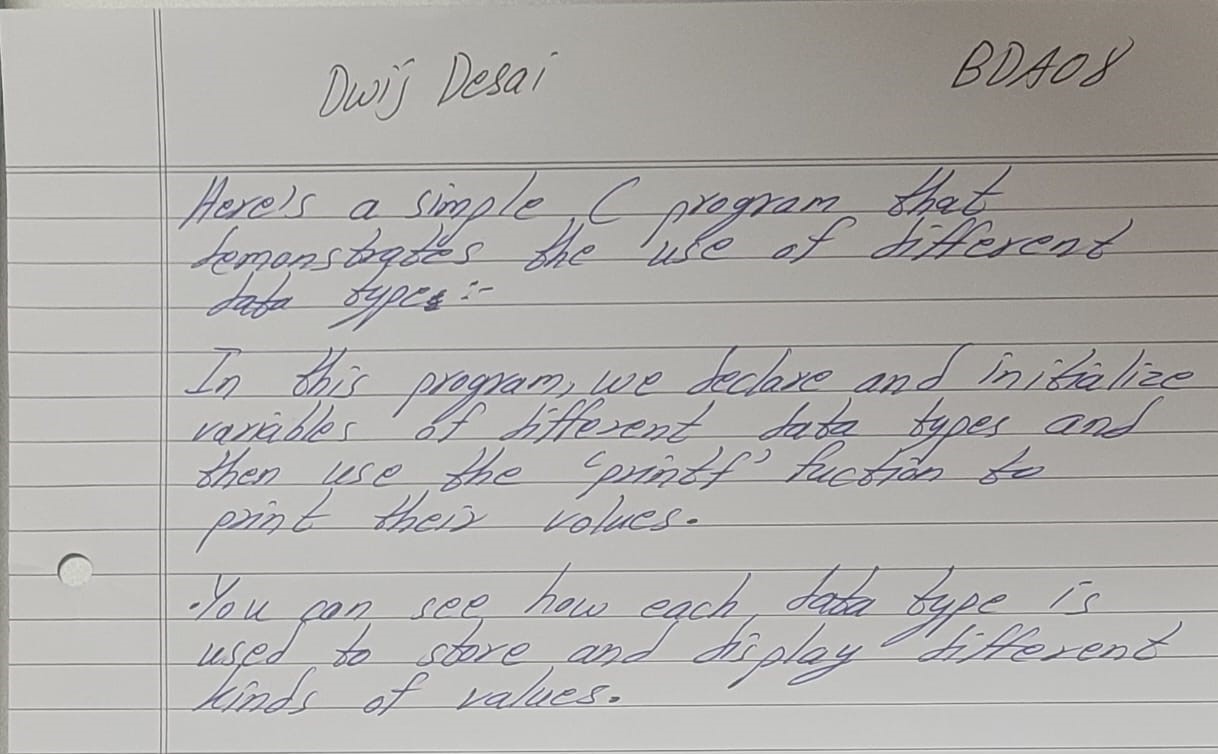 Dwij Desai BDA08
Here's a simple C program that
demonstrates the use of different
data types :-
In this program, we declare and initialize
variables of different data types and
then use the 'printf' fuction to
print their values.
You can see how each data type is
used to store and display different
kinds of values.